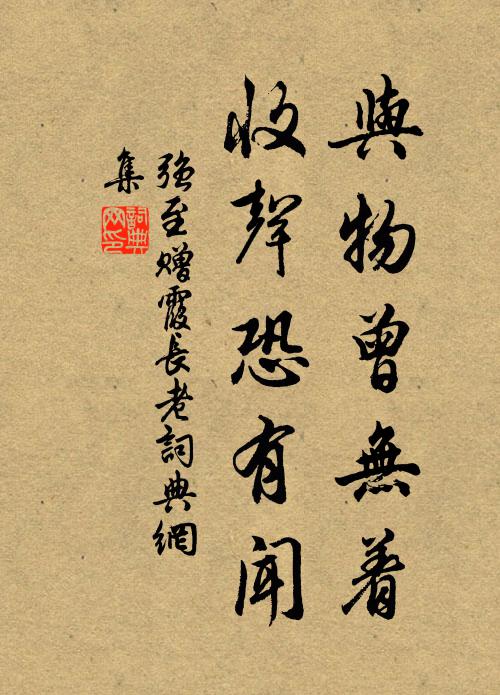 與物曾無着
收聲恐有聞
強至贈霞長老詞典網
集
詞典网印